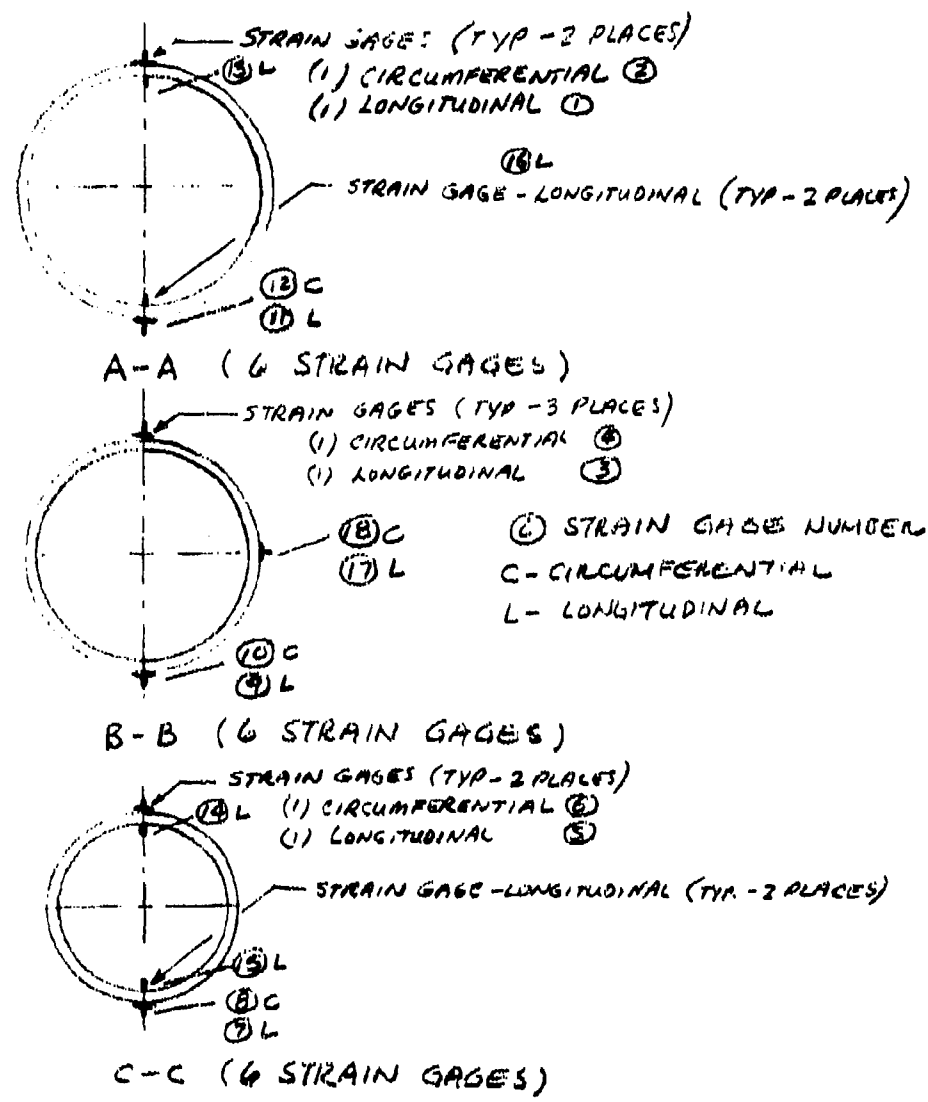 STRAIN GAGES (TYP - 2 PLACES)
13 L (1) CIRCUMFERENTIAL 2
(1) LONGITUDINAL 1
16 L
STRAIN GAGE - LONGITUDINAL (TYP - 2 PLACES)
12 C
11 L
A-A (6 STRAIN GAGES)
STRAIN GAGES (TYP - 3 PLACES)
(1) CIRCUMFERENTIAL 4
(1) LONGITUDINAL 3
18 C
17 L
STRAIN GAGE NUMBER
C - CIRCUMFERENTIAL
L - LONGITUDINAL
10 C
9 L
B-B (6 STRAIN GAGES)
STRAIN GAGES (TYP - 2 PLACES)
14 L (1) CIRCUMFERENTIAL 6
(1) LONGITUDINAL 5
STRAIN GAGE - LONGITUDINAL (TYP. - 2 PLACES)
L
8 C
7 L
C-C (6 STRAIN GAGES)